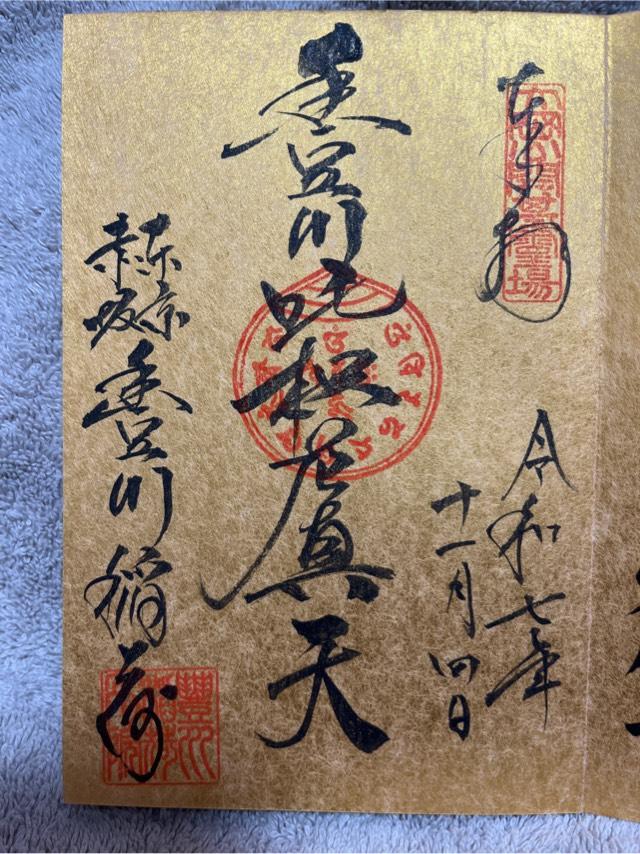 奉拝
令和七年
十一月四日
豊川吒枳尼真天
東京
赤坂
豊川稲荷